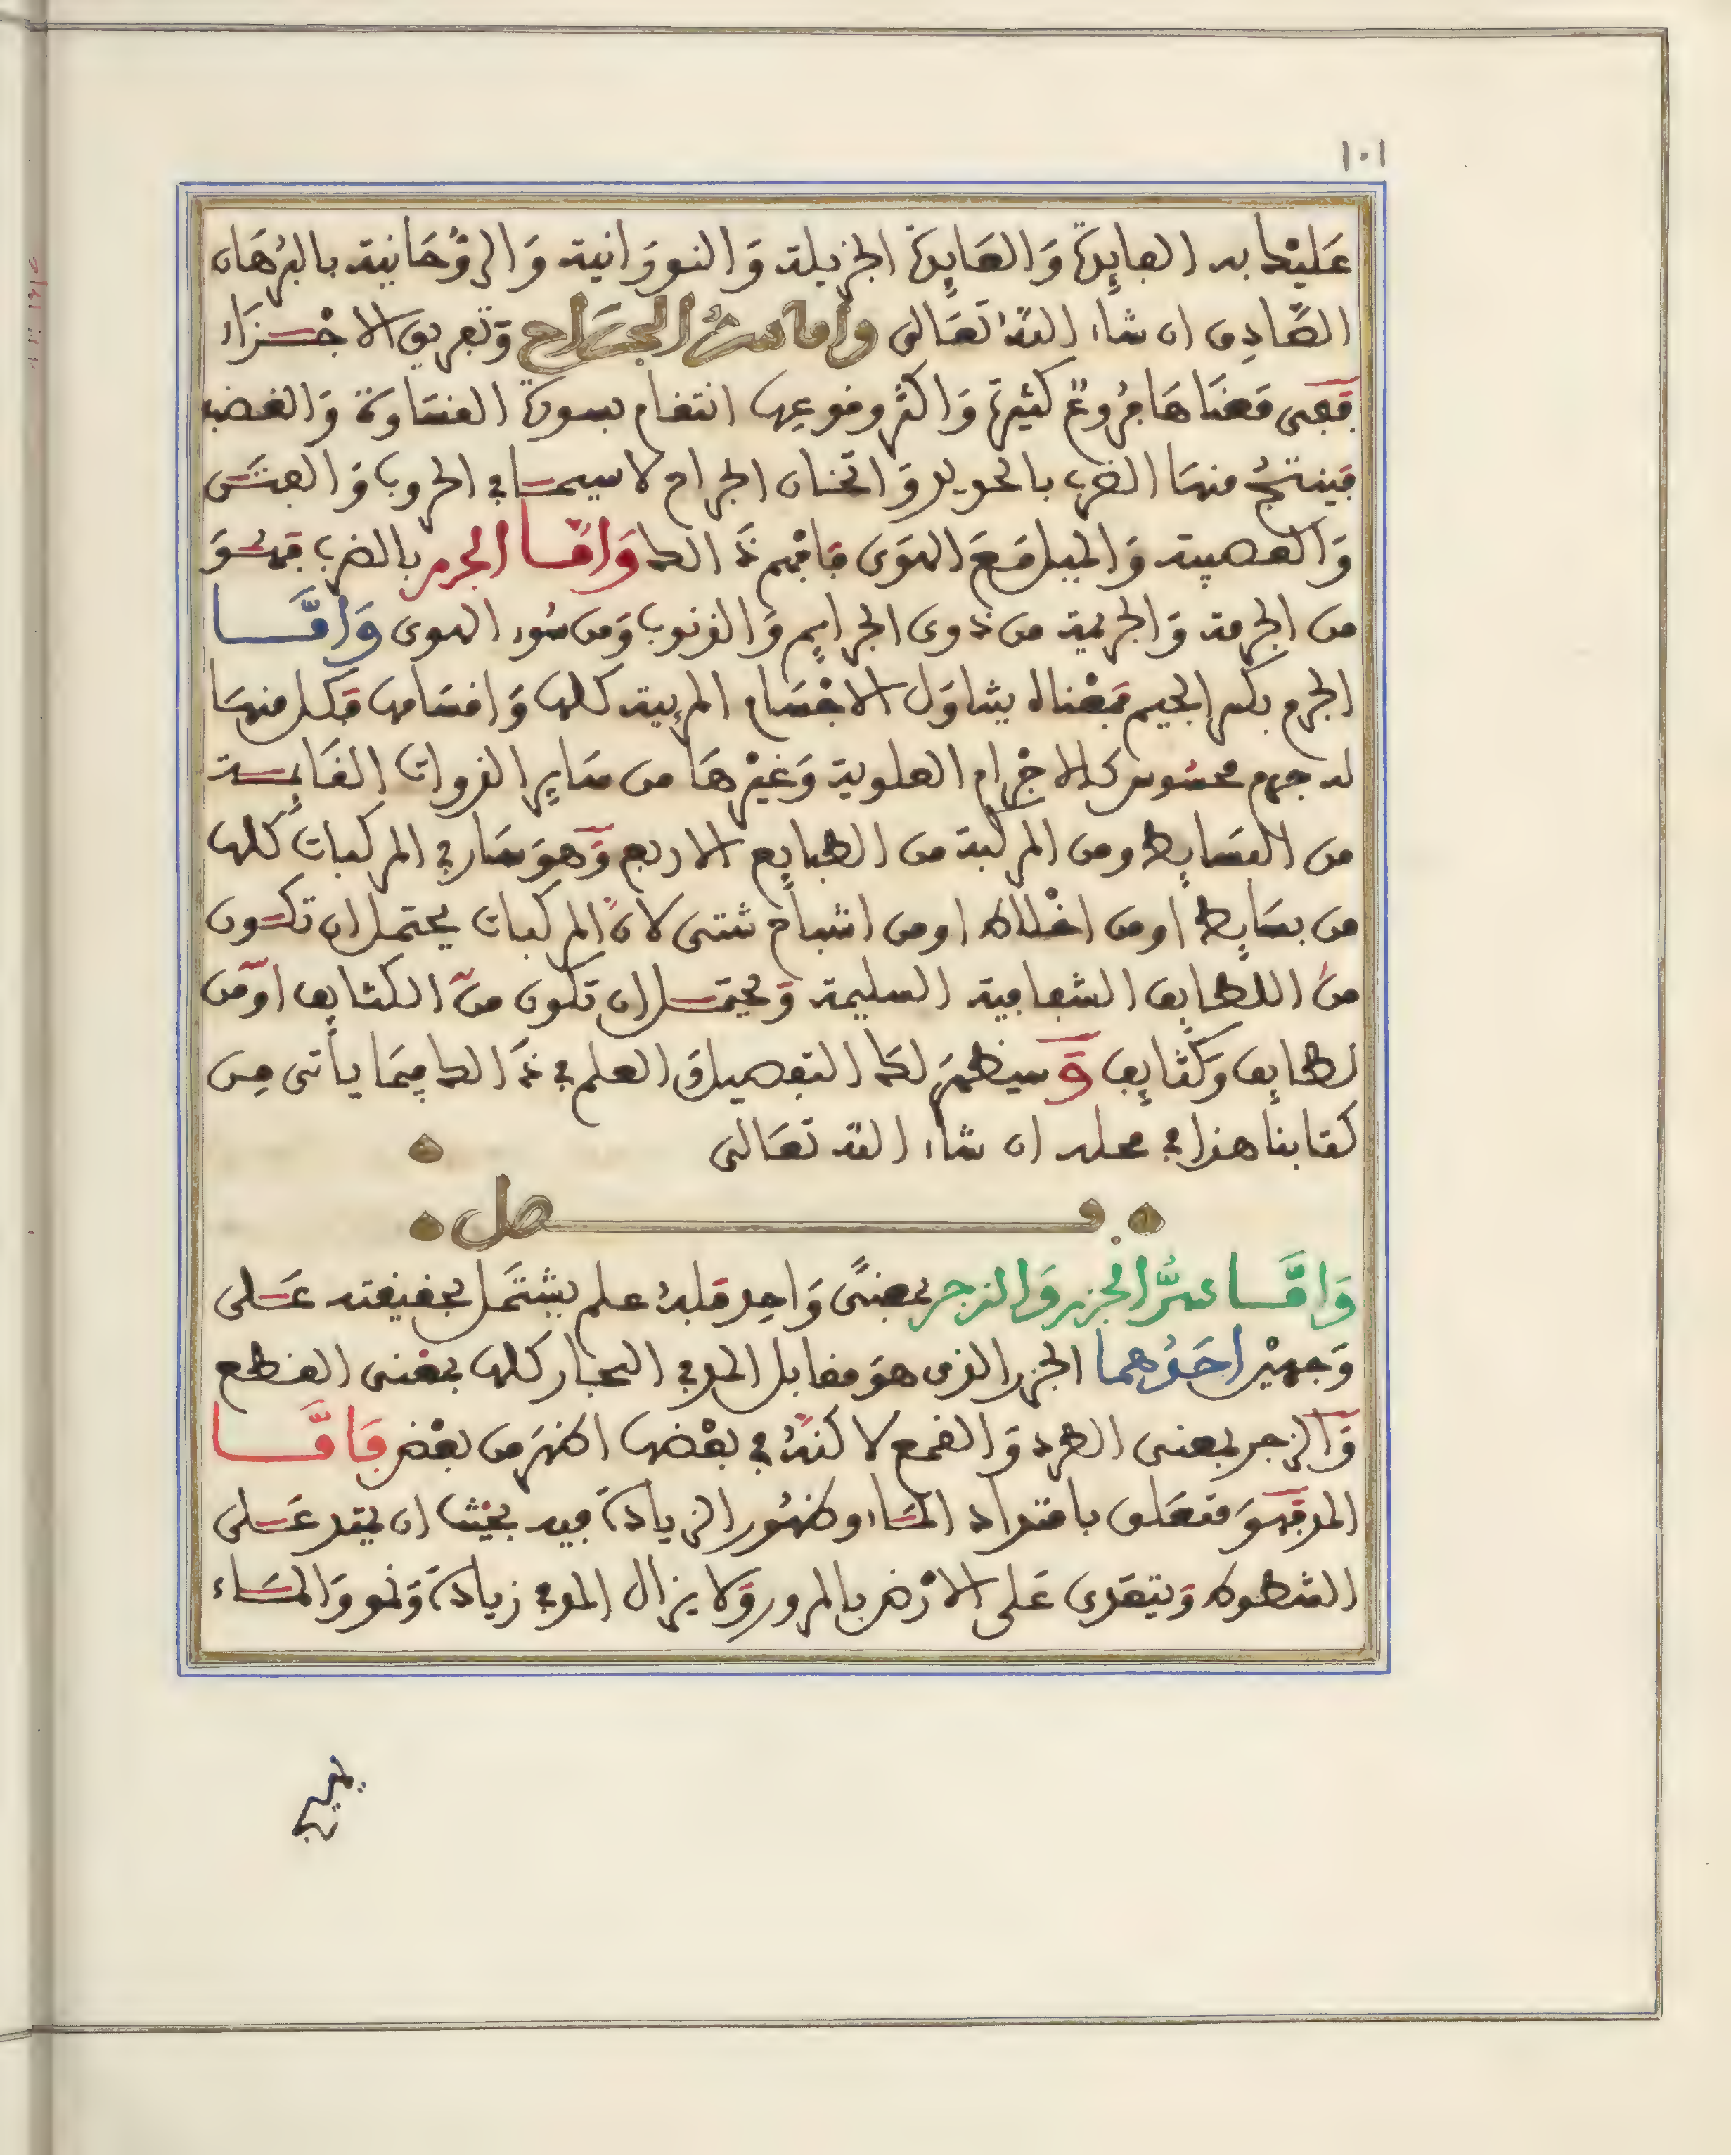 ١٠١
عَلَيْكَ به الفايِدَة وَالعَايِدَة الجزيلة وَالنورَانية وَالرّوُحَانية بالبُرهَان
الصَّادِق ان شاء اللهُ تعَالى وأما سرُّ الجرَاح وَتفريق الاجْزَاء
فَفِى مَعنَاهَا فرُوعٌ كثيرَة وَاكثر وقوعِها انتقام بسورة القسَاوة وَالغضب
فينتجُ منهَا الضرب بالحديد وَاثخان الجراح لا سيمَا في الحروب وَالفتَن
وَالعصبية وَالميل مَعَ الهوَى فافْهم ذَالك وَامَّا الجرم بالضم فهُوَ
من الجرمة وَالجريمة من ذوى الجرايم وَالذنوب وَمن سُوء الهوى وَأمَّا
الجرم بكسر الجيم فمعْناه يتناوَل الاجْسَام المرءية كلها وَاقسَامها فكل منهَا
له جرم محسُوس كالاجْرام العلوية وَغيْرهَا من سَايِر الذوات القَايمة
من البسَايط ومن المركبة من الطبايع الاربع وَهوَ سَار في المركبات كلها
من بسَايط او من اخْلاط او من اشباح شتى لانّ المركبات يحتمل ان تكون
منَ اللطايف الشفافية السليمة وَيحتمل ان تكون منَ الكثايف اوْ من
لطايف وَكثَايف وَسيظهرَ لكَ التفصيل وَالعلم في ذَالك فيمَا يأتى مِن
كتابنا هذا في محله ان شاء الله تعَالى
فصل
وَامَّا سرُّ الجزر وَالزجر بمعنىً وَاحِد فلهُ علم يشتمَل بحقيقته عَلى
وَجهيْن احَدُهما الجزر الذى هوَ مقابل المد في البحار كلها بمعْنى القطع
وَالزجر بمعنى الطرد وَالقمع لاكنّهُ في بعْضها اظهَر من بعْض فَامَّا
المد فهوَ متعَلق بامتداد المَاء وظهُور الزيادَة فيه بحيْث ان يمتد عَلى
الشطوط وَيتعَدى عَلى الارْض بالمرور وَلا يزال المد في زيادَة وَنمو وَالمَاء